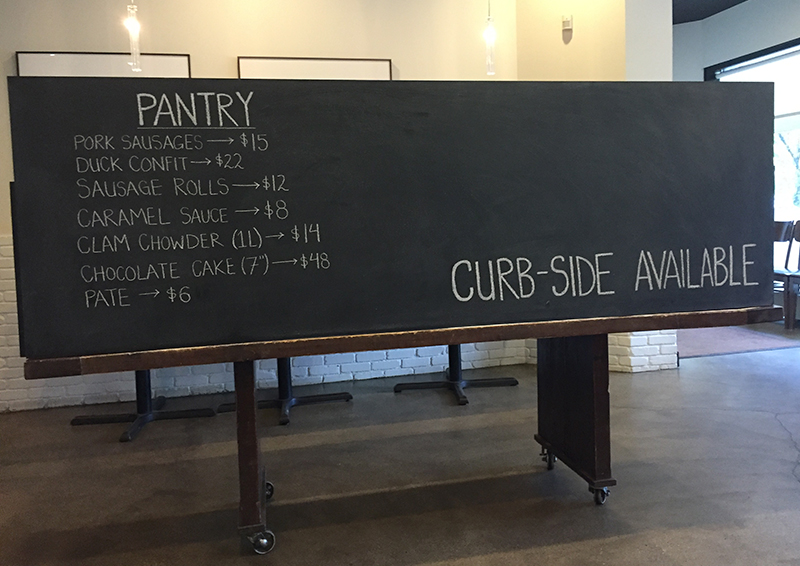 PANTRY
PORK SAUSAGES → $15
DUCK CONFIT → $22
SAUSAGE ROLLS → $12
CARAMEL SAUCE → $8
CLAM CHOWDER (1L) → $14
CHOCOLATE CAKE (7") → $48
PATE → $6
CURB-SIDE AVAILABLE